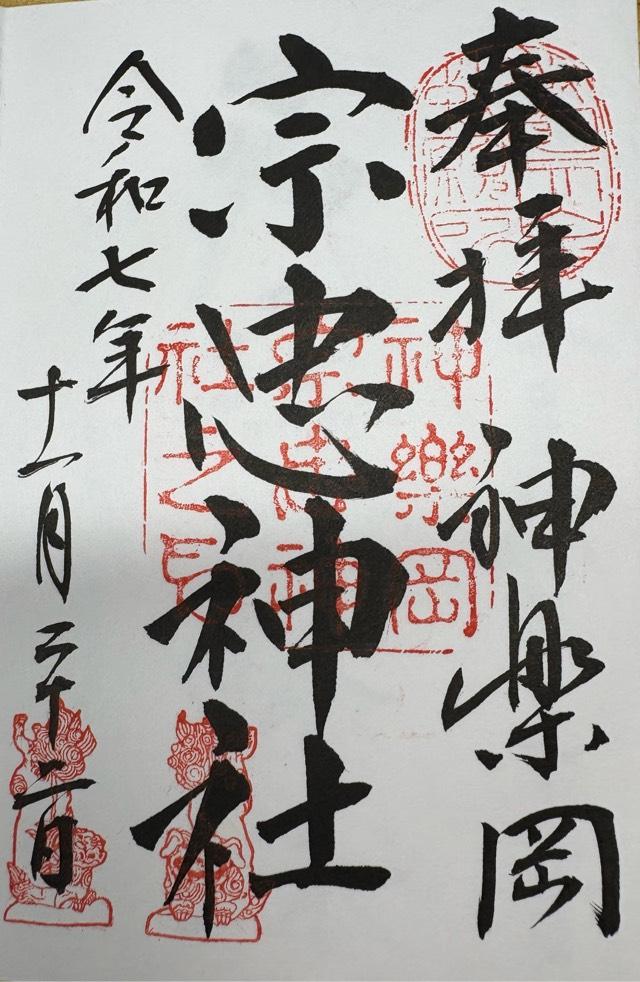 奉拝 神楽岡
宗忠神社
令和七年
十一月二十二日
神樂岡
宗忠神
社之印